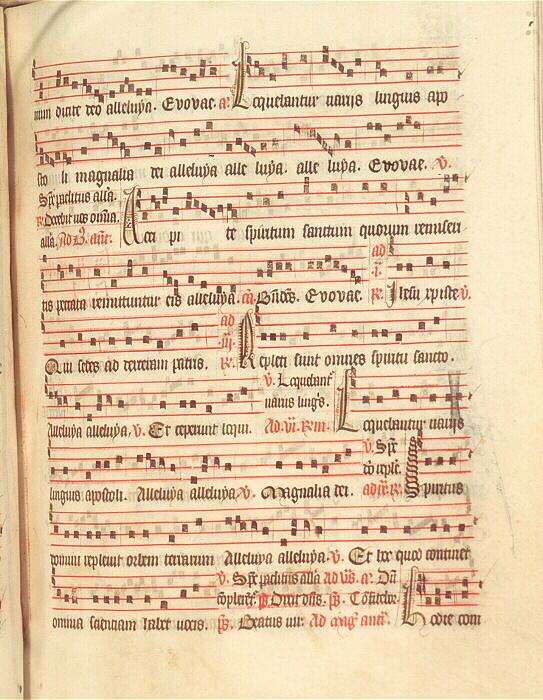 num dicite deo alleluya. Evovae. a. Loquebantur variis linguis apo
sto li magnalia dei alleluya alle luya. alle luya. Evovae. v.
Sps paclitus alla.
R. Docebit vos omia.
alla. Ad B. ant. Acci pi te spiritum sanctum quorum remiseri
tis peccata remittuntur eis alleluya. Bndcs. Evovae. ad .i. R. Ihesu xpiste v.
Qui sedes ad dexteram patris. ad .iii. R. Repleti sunt omnes spiritu sancto.
v. Loquebant
variis lings.
Alleluya alleluya. v. Et ceperunt loqui. Ad .vi. R. Loquebantur variis
v. Sps
linguis apostoli. Alleluya alleluya. v. Magnalia dei. R. Spiritus
domini replevit orbem terrarum Alleluya alleluya. v. Et hoc quod continet
v. Sps paclitus alla ad vs. a. Dum
complerent. ps. Dixit dns. ps. Confitebor.
omnia scientiam habet vocis. ps. Beatus vir. Ad mag ant. Hodie com